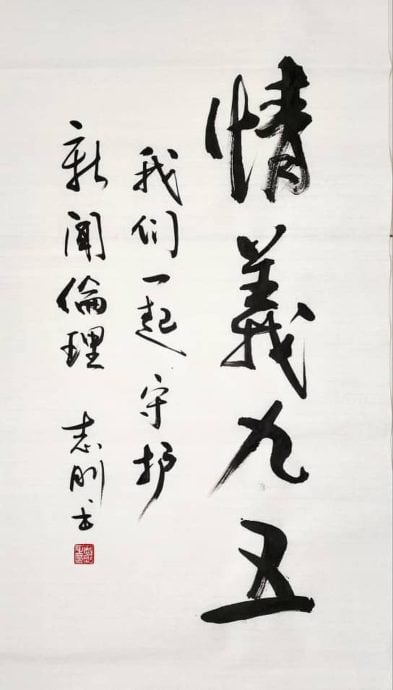 情義九五
我们一起守护
新闻倫理
志刚书